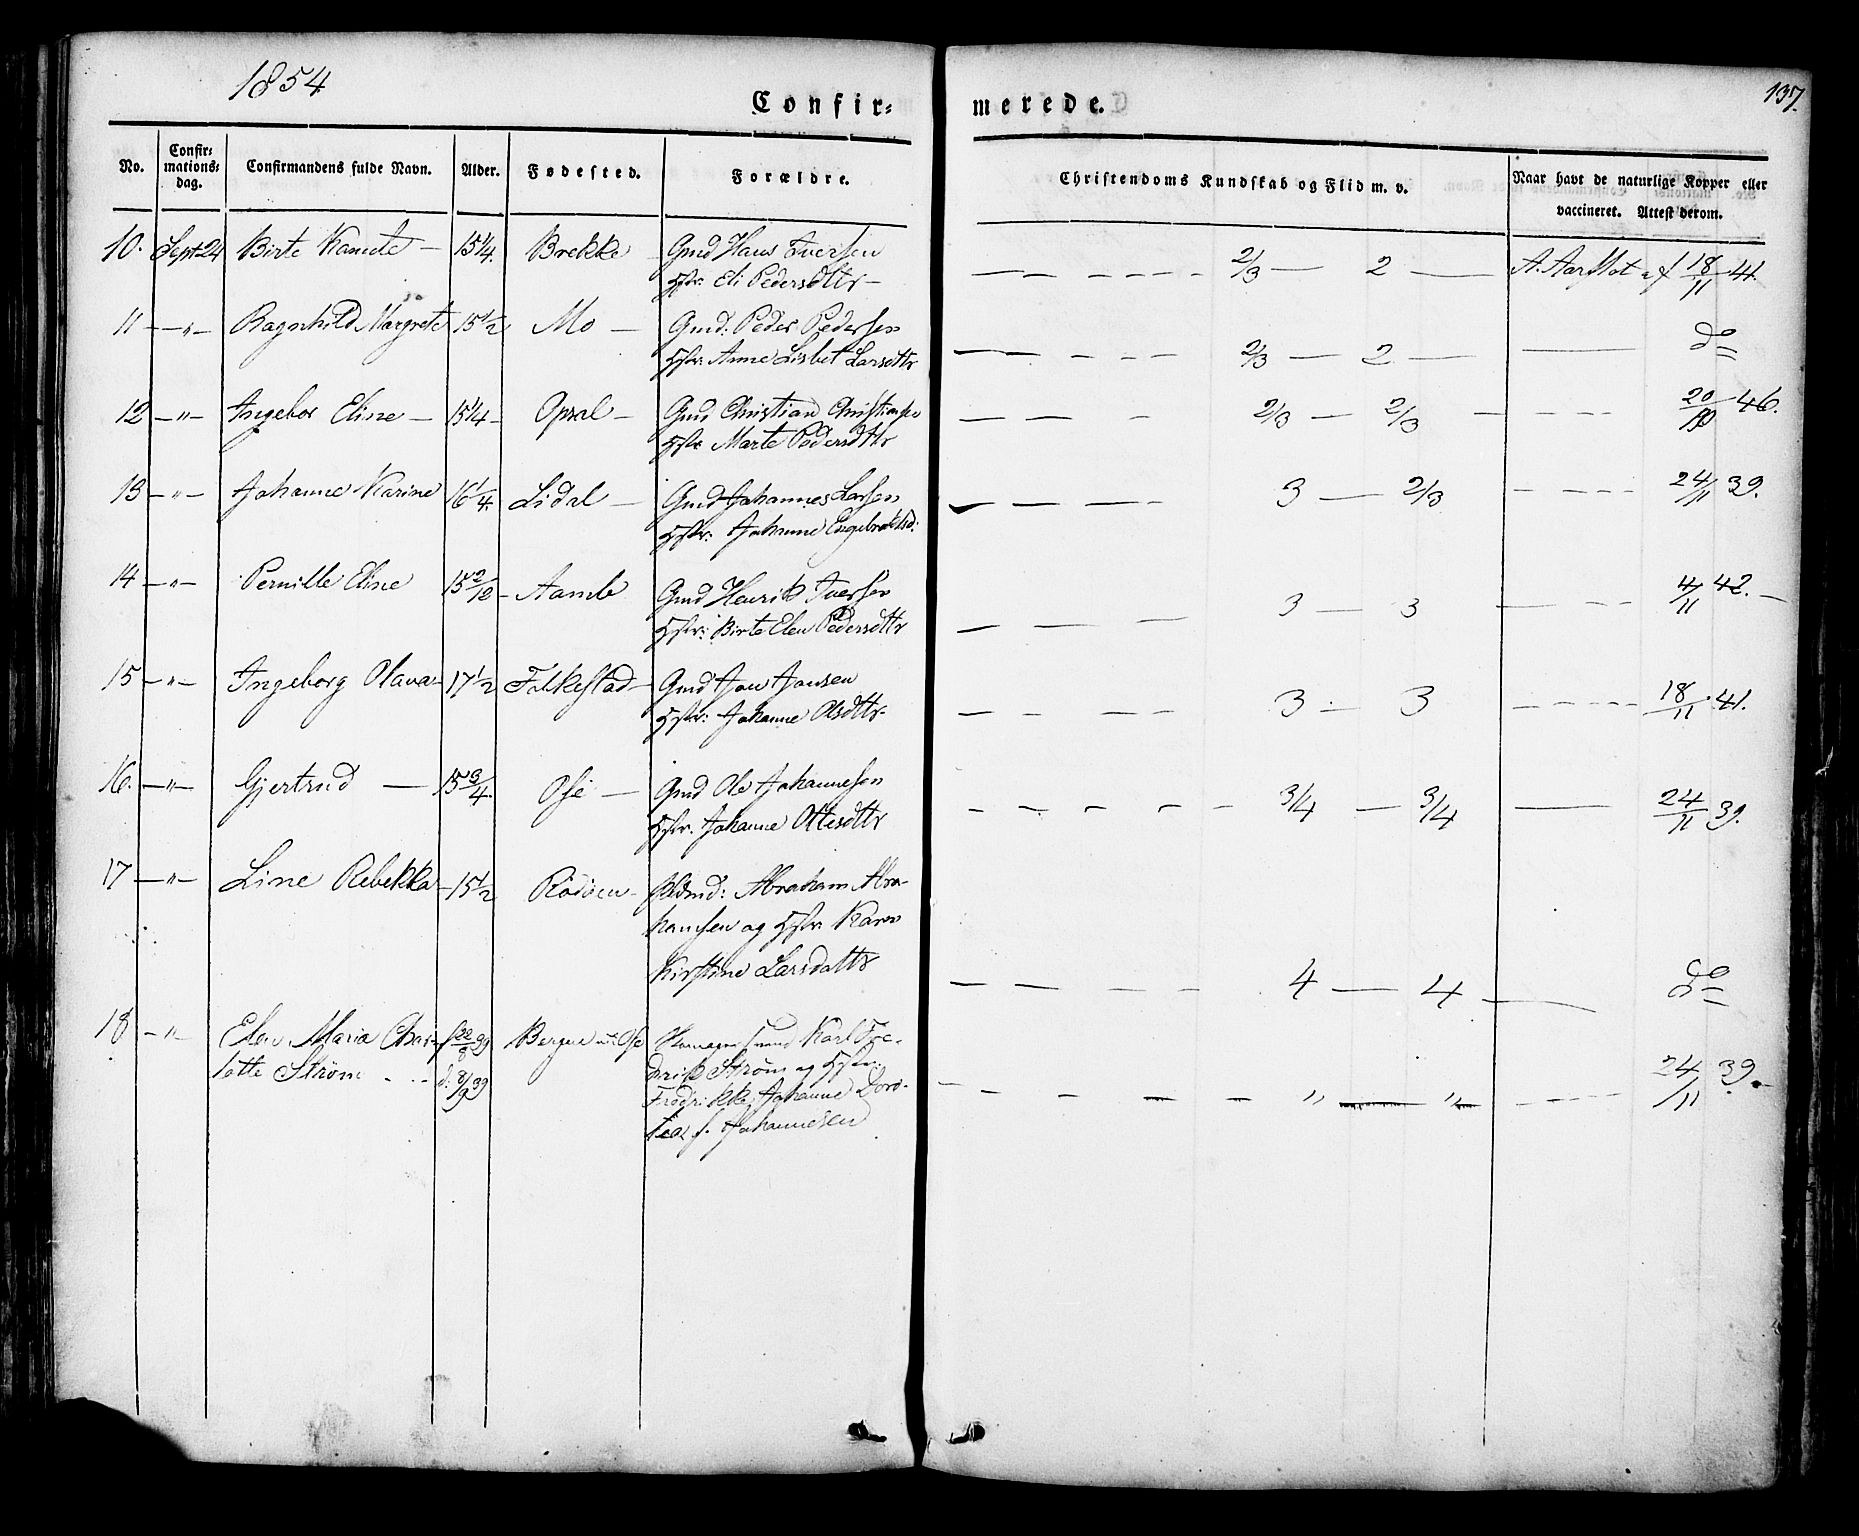 1854
Confir=
merede.
137.
No.
Confir=
mations=
dag.
Confirmandens fulde Navn.
Alder.
Fødested.
Forældre.
Christendoms Kundskab og Flid m. v.
Naar havt de naturlige Kopper eller
vaccineret. Attest derom.
10. Sept 24 Birte Kamele — 15 1/4. Brekke Gmd Hans Iversen
Hstr: Eli Pedersdttr —
— — - - - - 2/3 — 2 — A. Aarflot af 18/11 41.
11 — „ — Ragnhild Margrete 15 1/2 Mo — Gmd: Peder Pedersen
Hstr: Anne Lisbet Larsdttr
— — - - — 2/3 — 2 — — do
12 — „ — Ingebor Eline — 15 1/4 - Opsal — Gmd Christian Christiansen
Hstr Marte Pedersdttr
— — — — 2/3 — 2/3 — - - - 20/10 46.
13 — „ — Johanne Karine 16 1/4. Lidal — Gmd Johannes Larsen
Hstr: Johanne Engebretsd:
— — — — 3 — 2/3 - - - - 24/11 39.
14 — „ — Pernille Eline 15 2/12 - Aamb Gmd Henrik Iversen
Hstr: Birte Elen Pedersdttr
— — — 3 — 3 — - - 4/11 42. —
15 — „ — Ingeborg Olava - 17 1/2 Folkestad — Gmd Jon Jonsen
Hstr: Johanne Olsdttr.
— — — — 3 — 3 - - - - 18/11 41.
16. — „ — Gjertrud — 15 3/4. Ose — Gmd Ole Johannesen
Hstr. Johanne Ottesdttr
— - - - - 3/4 — 3/4 — 24/11 39.
17 — „ — Line Rebekka — 15 1/2 Rødøen - Abraham Abra-
hamsen og Hstr Karen
Kirstine Larsdattr
— — — - 4 — 4 — do
18 — „ Elen Maria Char- f 22/8 39 Bergen Ose Karl Fre-
lotte Strøm - - - d. 8/9 39 drik Strøm og Hstr.
Fredrikke Johanne Doro-
tea f. Johannesen
— - - - - „ — „ - - - - 24/11 39. -